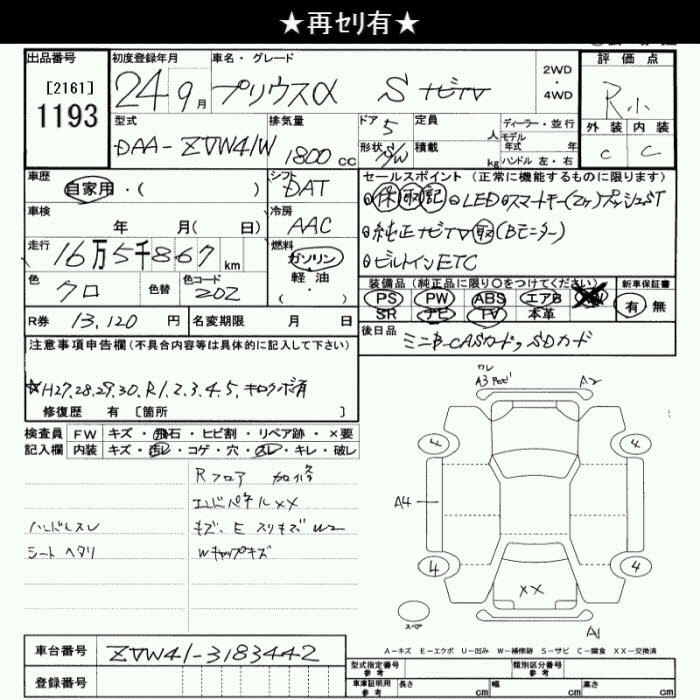 ★再セリ有★
出品番号 初度登録年月 車名・グレード 2WD・4WD 評価点
[2161]
1193
24年9月 プリウスα S ナビTV R小
外装 内装
C C
型式 排気量 ドア 定員 人 ディーラー・並行
モデル年式 年
DAA-ZVW41W 1800cc 5
形状 S/W 積載 kg ハンドル 左・右
車歴 シフト セールスポイント (正常に機能するものに限ります)
自家用・( ) DAT
保 取 記 LED スマートキー(2ヶ)プッシュST
車検 冷房
年 月(日) AAC
純正ナビTV 取 (Bモニター)
走行 燃料
16万5千867km ガソリン・軽油・( )
ビルトインETC
色 色替 色コード
クロ 202
装備品(純正品に限り○をつけてください) 新車保証書
PS PW ABS エアB 有 無
SR ナビ TV 本革
R券 13,120円 名変期限 月 日
後日品 ミニB-CASカード, SDカード
注意事項申告欄(不具合内容等は具体的に記入して下さい)
☆H27,28,29,30,R1,2,3,4,5,キロクボ有
修復歴 有 [箇所 ]
検査員 FW キズ・飛石・ヒビ割・リペア跡・×要
記入欄 内装 キズ・汚レ・コゲ・穴・スレ・キレ・破レ
Rフロア 加修
エンドパネルXX
ハンドルスレ キズ、E スリキズ W2
シートヘタリ Wキャップキズ
ワレ
A3 A2
4 4
A4
4 4
XX
スペア
A1
A-キズ E-エクボ U-凹み W-補修跡 S-サビ C-腐食 XX-交換済
車台番号 ZVW41-3183442
登録番号
型式指定番号 参考 類別区分番号 参考
車庫証明用 参考 長さ cm 幅 cm 高さ cm